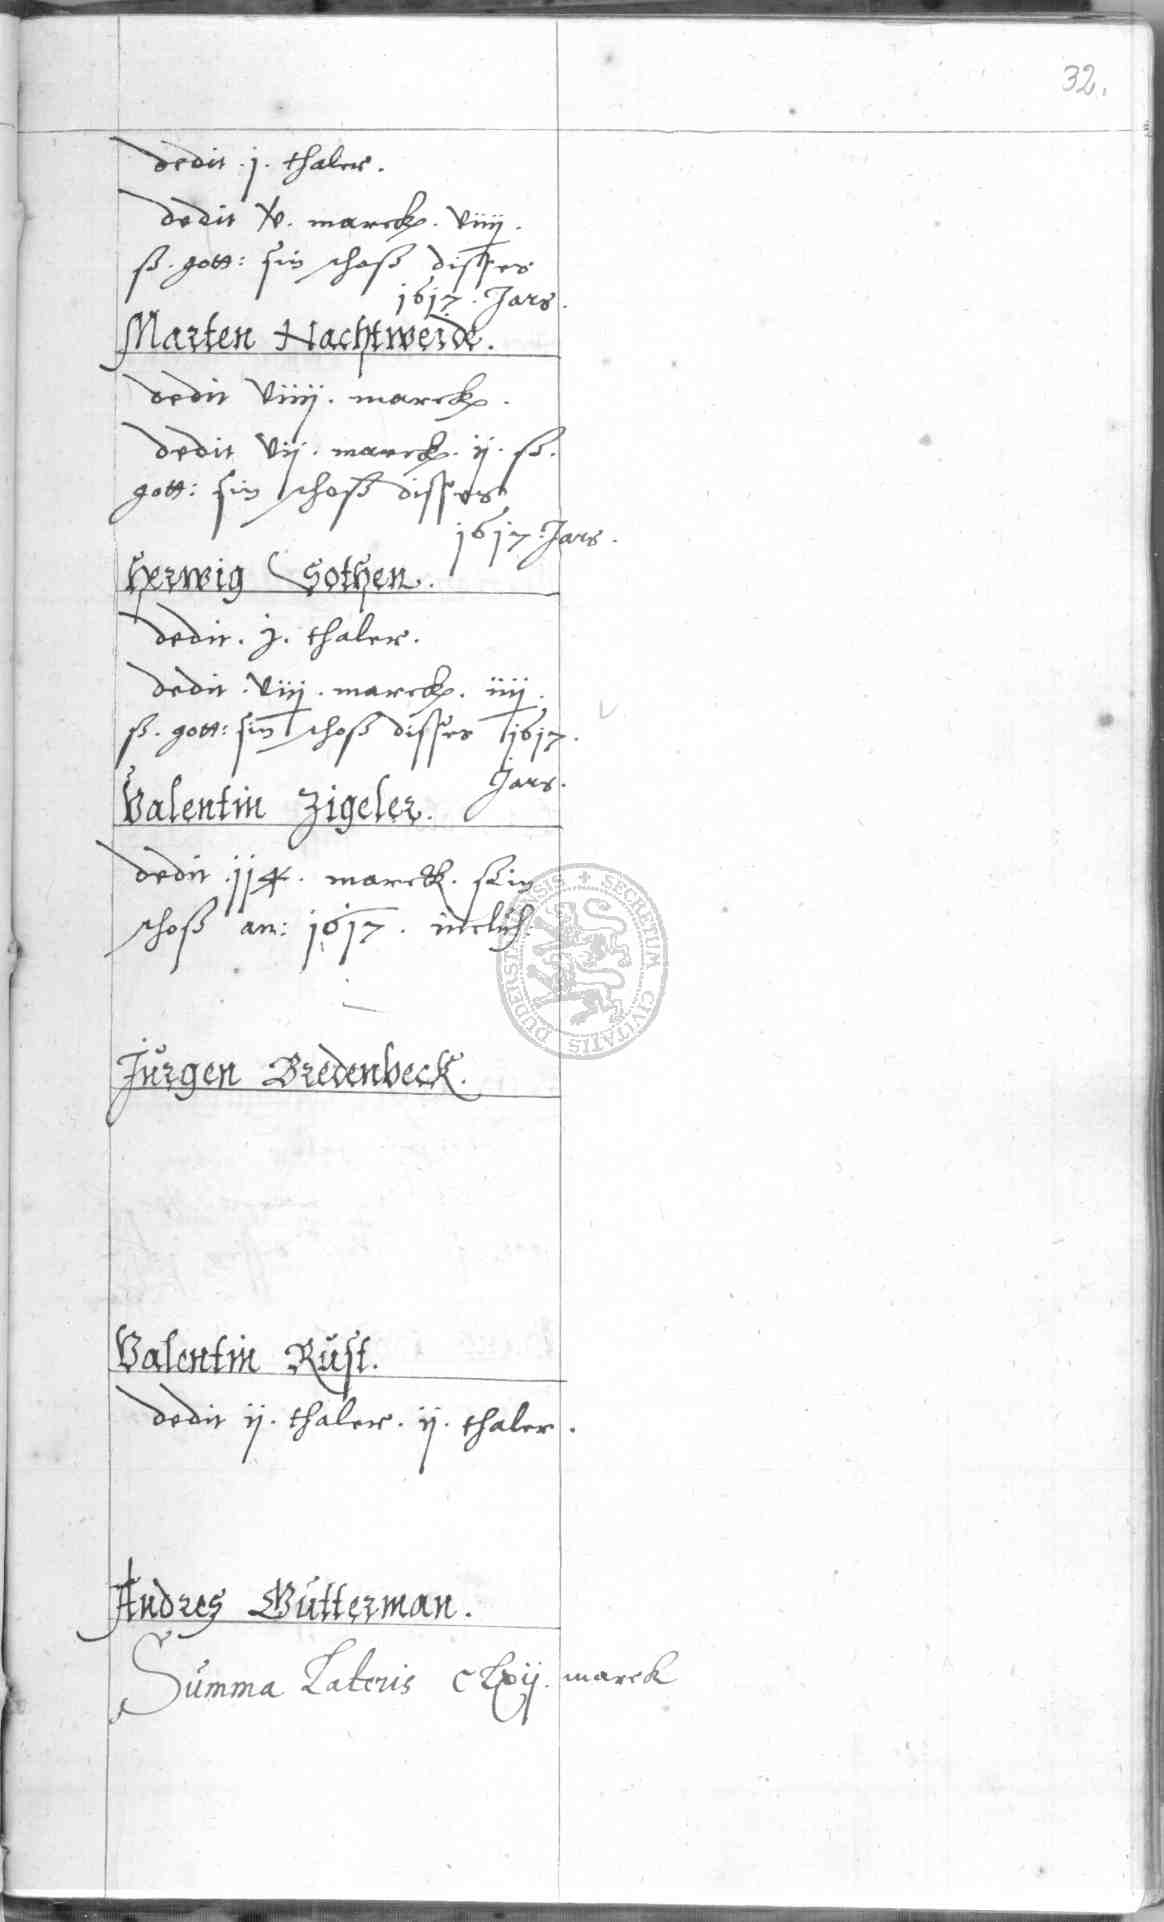 32.
dedit . j . thaler .
dedit x . marck . viiij .
ß . gott : sin schoß disses
1617 . Jars .
Marten Nachtweide .
dedit viiij . marck .
dedit vij . marck . ij . ß .
gott : sin schoß disses
1617 . Jars .
Herwig Sothen .
dedit . j . thaler .
dedit . viij . marck . iiij .
ß . gott : sin schoß disses 1617 .
Jars .
Valentin Zigeler .
dedit marck . sin
schoß an : 1617 .
Jürgen Bredenbeck .
Valentin Rüst .
dedit ij . thaler . ij . thaler .
Andres Bütterman .
Summa Lateris clxij . marck
SECRETUM CIVITATIS DUDERSTADENSIS